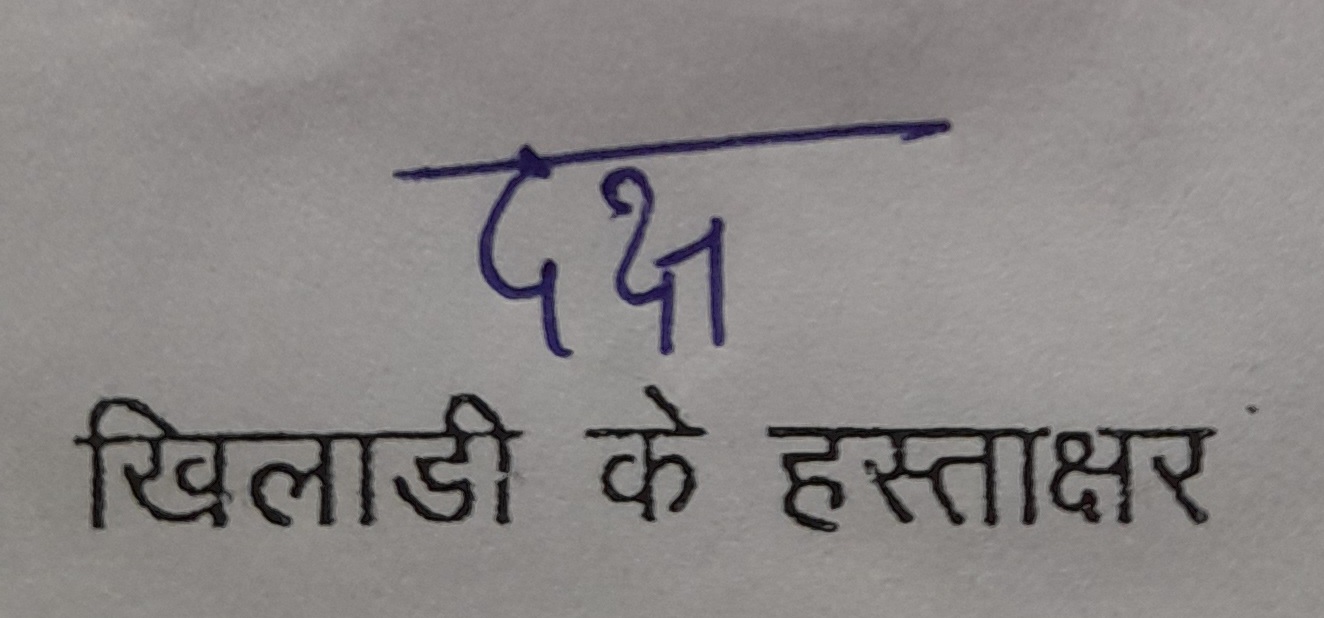 दक्ष
खिलाडी के हस्ताक्षर